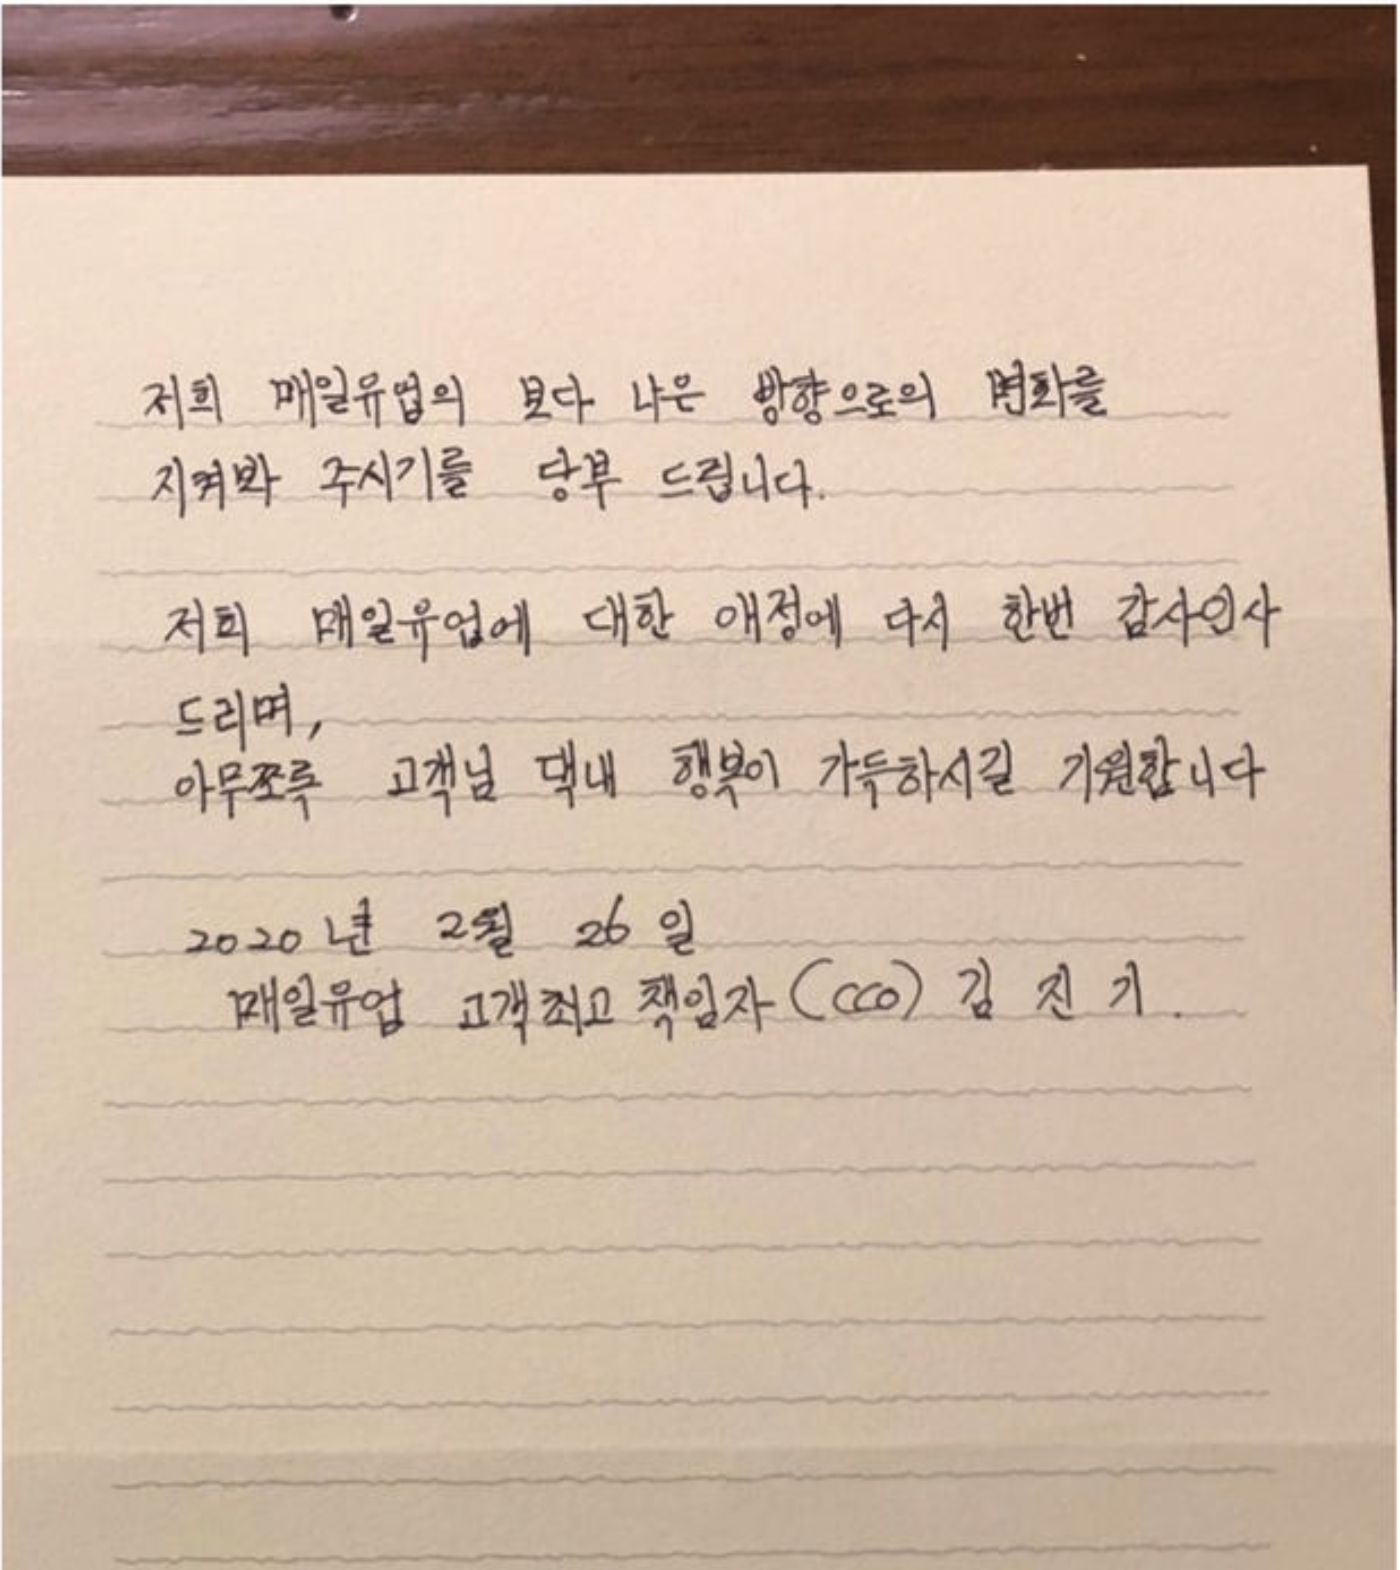 저희 매일유업의 보다 나은 방향으로의 변화를
지켜봐 주시기를 당부 드립니다.
저희 매일유업에 대한 애정에 다시 한번 감사인사
드리며,
아무쪼록 고객님 댁내 행복이 가득하시길 기원합니다
2020년 2월 26일
매일유업 고객최고책임자(CCO) 김 진 기.